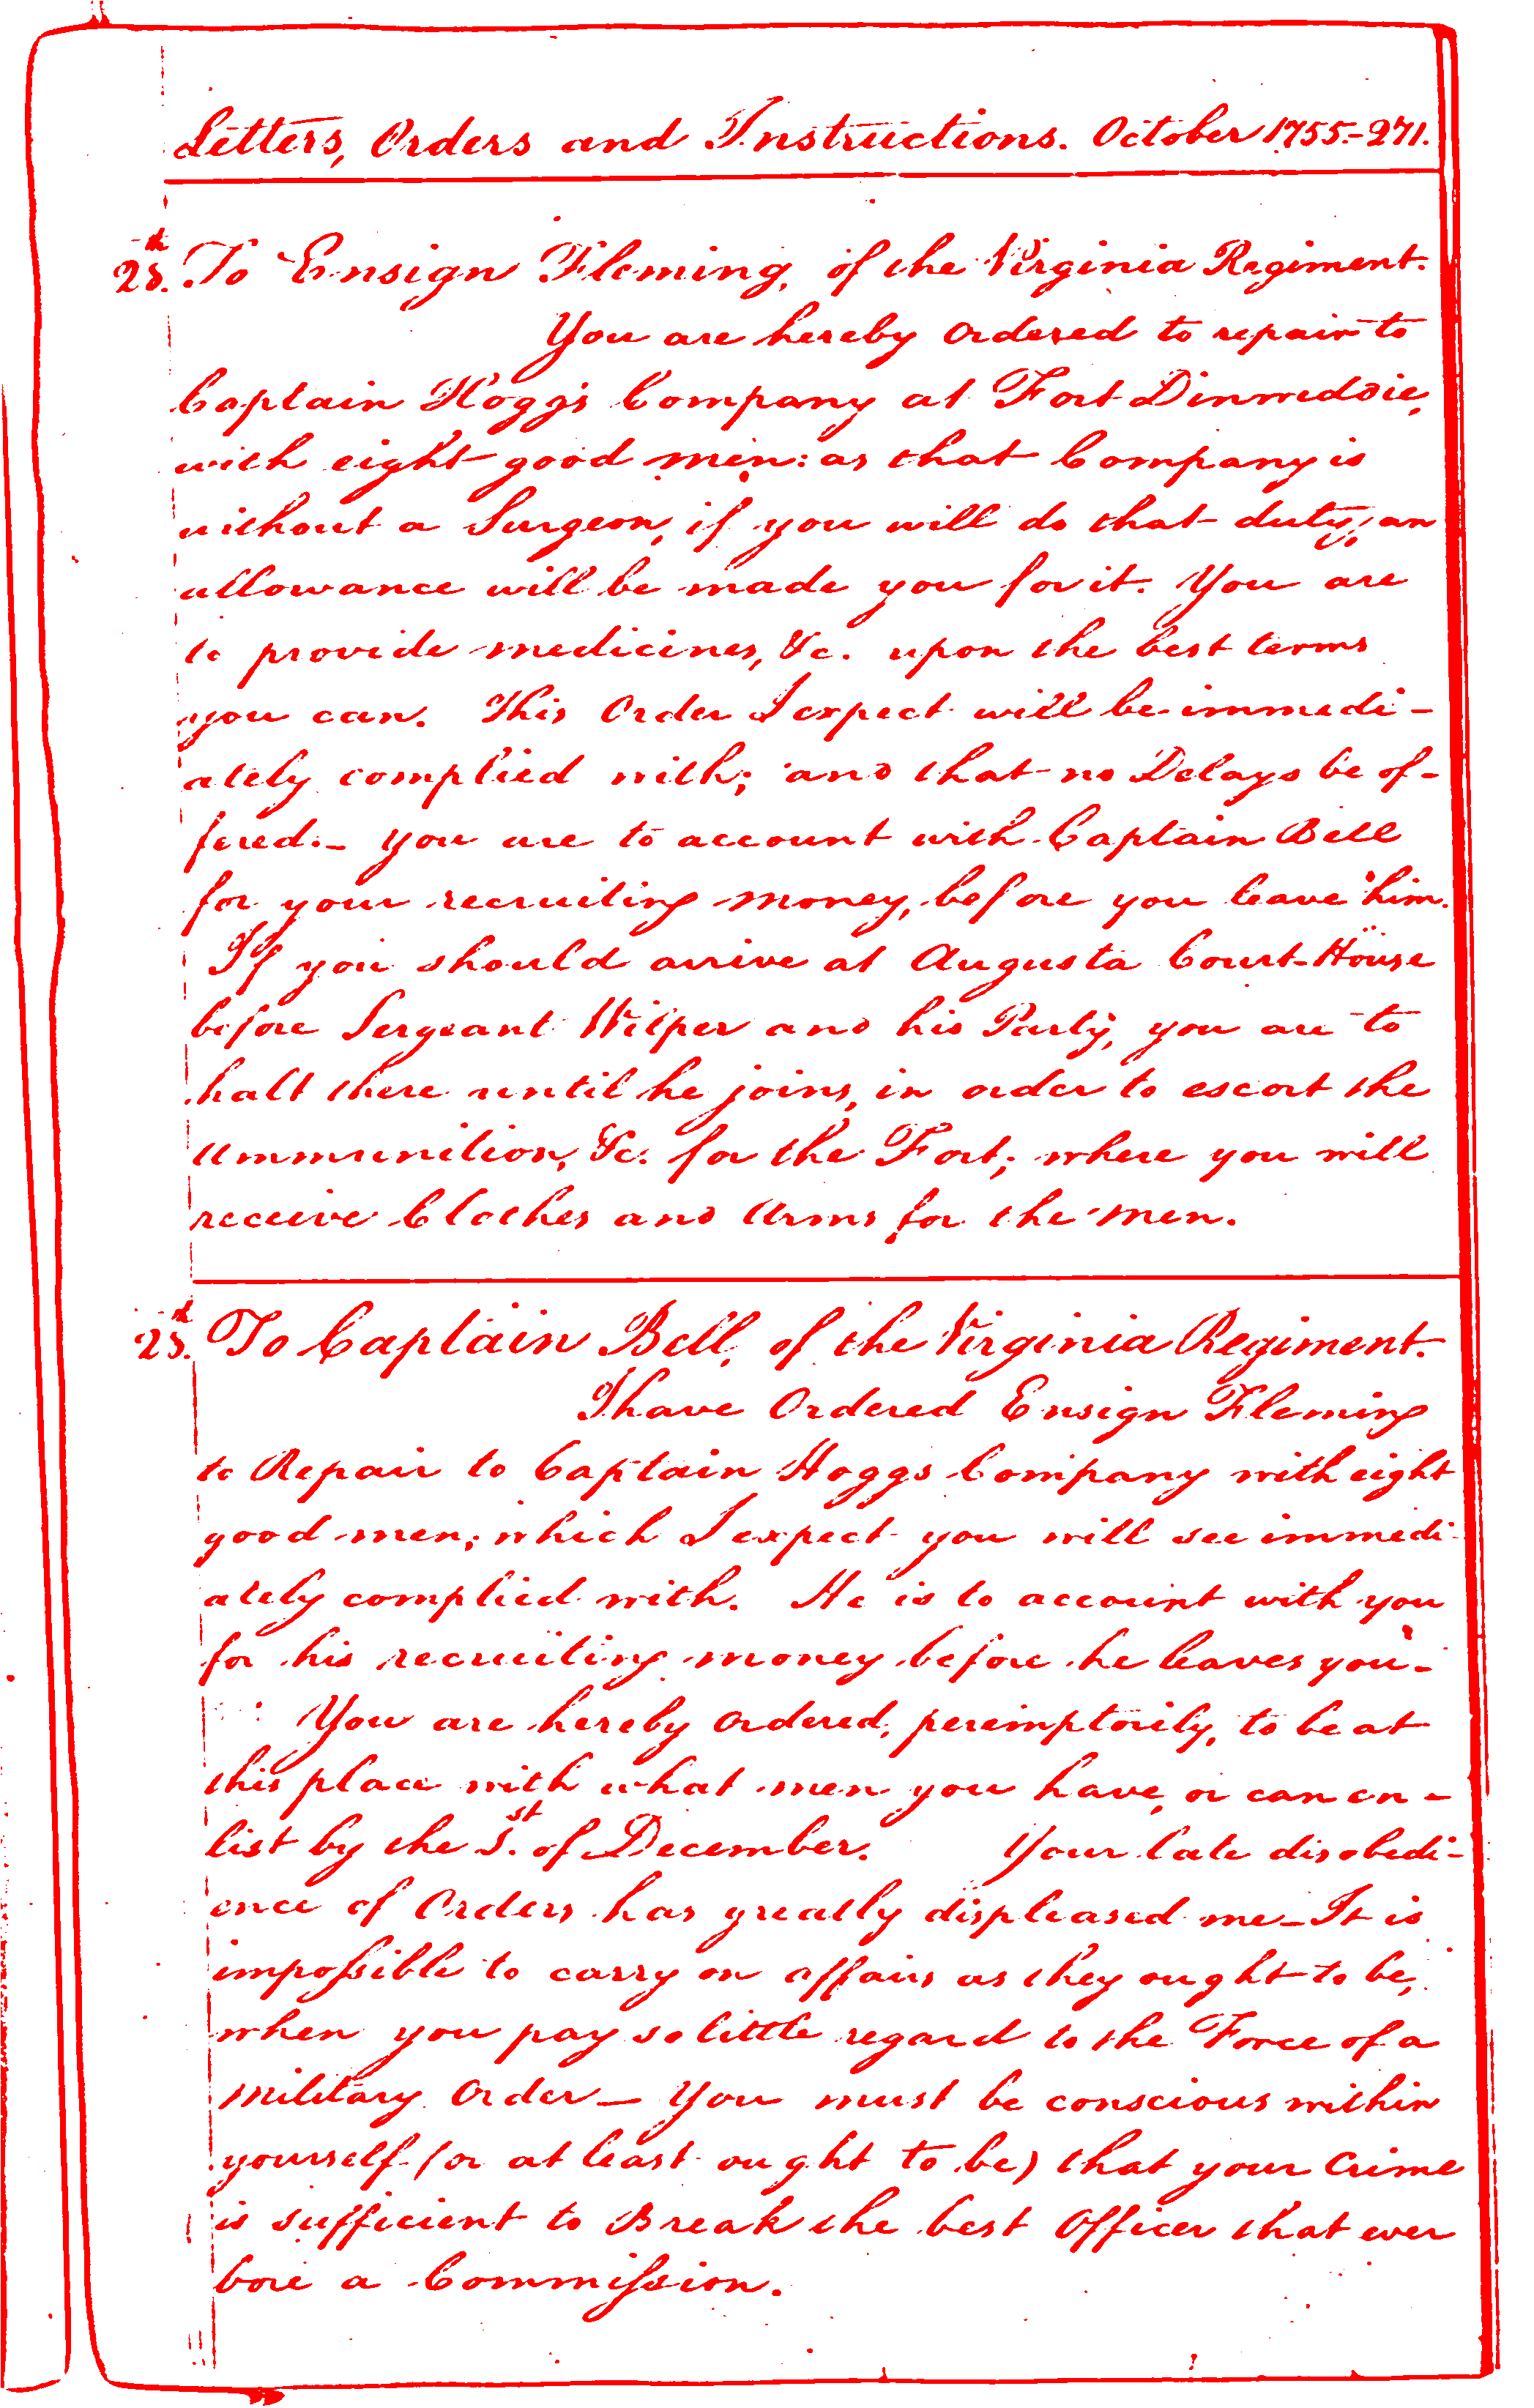 Letters, Orders and Instructions. October 1755.-271.
28.th To Ensign Fleming, of the Virginia Regiment.
You are hereby ordered to repair to
Captain Hogg's Company at Fort Dinwiddie,
with eight good men: as that Company is
without a Surgeon, if you will do that duty, an
allowance will be made you for it. You are
to provide medicines, &c. upon the best terms
you can. This Order I expect will be immedi-
ately complied with; and that no Delays be of-
fered.- You are to account with Captain Bell
for your recruiting money, before you leave him.
If you should arrive at Augusta Court-House
before Sergeant Wilper and his Party, you are to
halt there until he joins, in order to escort the
Ammunition, &c. for the Fort; where you will
receive Clothes and Arms for the men.
28.th To Captain Bell, of the Virginia Regiment.
I have Ordered Ensign Fleming
to Repair to Captain Hoggs Company with eight
good men; which I expect you will see immedi-
ately complied with. He is to account with you
for his recruiting money before he leaves you-
You are hereby ordered, peremptorily, to be at
this place with what men you have, or can en-
list by the 1.st of December. Your late disobedi-
ence of Orders has greatly displeased me-It is
impossible to carry on affairs as they ought to be,
when you pay so little regard to the Force of a
military Order- You must be conscious within
yourself (or at least ought to be) that your Crime
is sufficient to Break the best Officer that ever
bore a Commission.